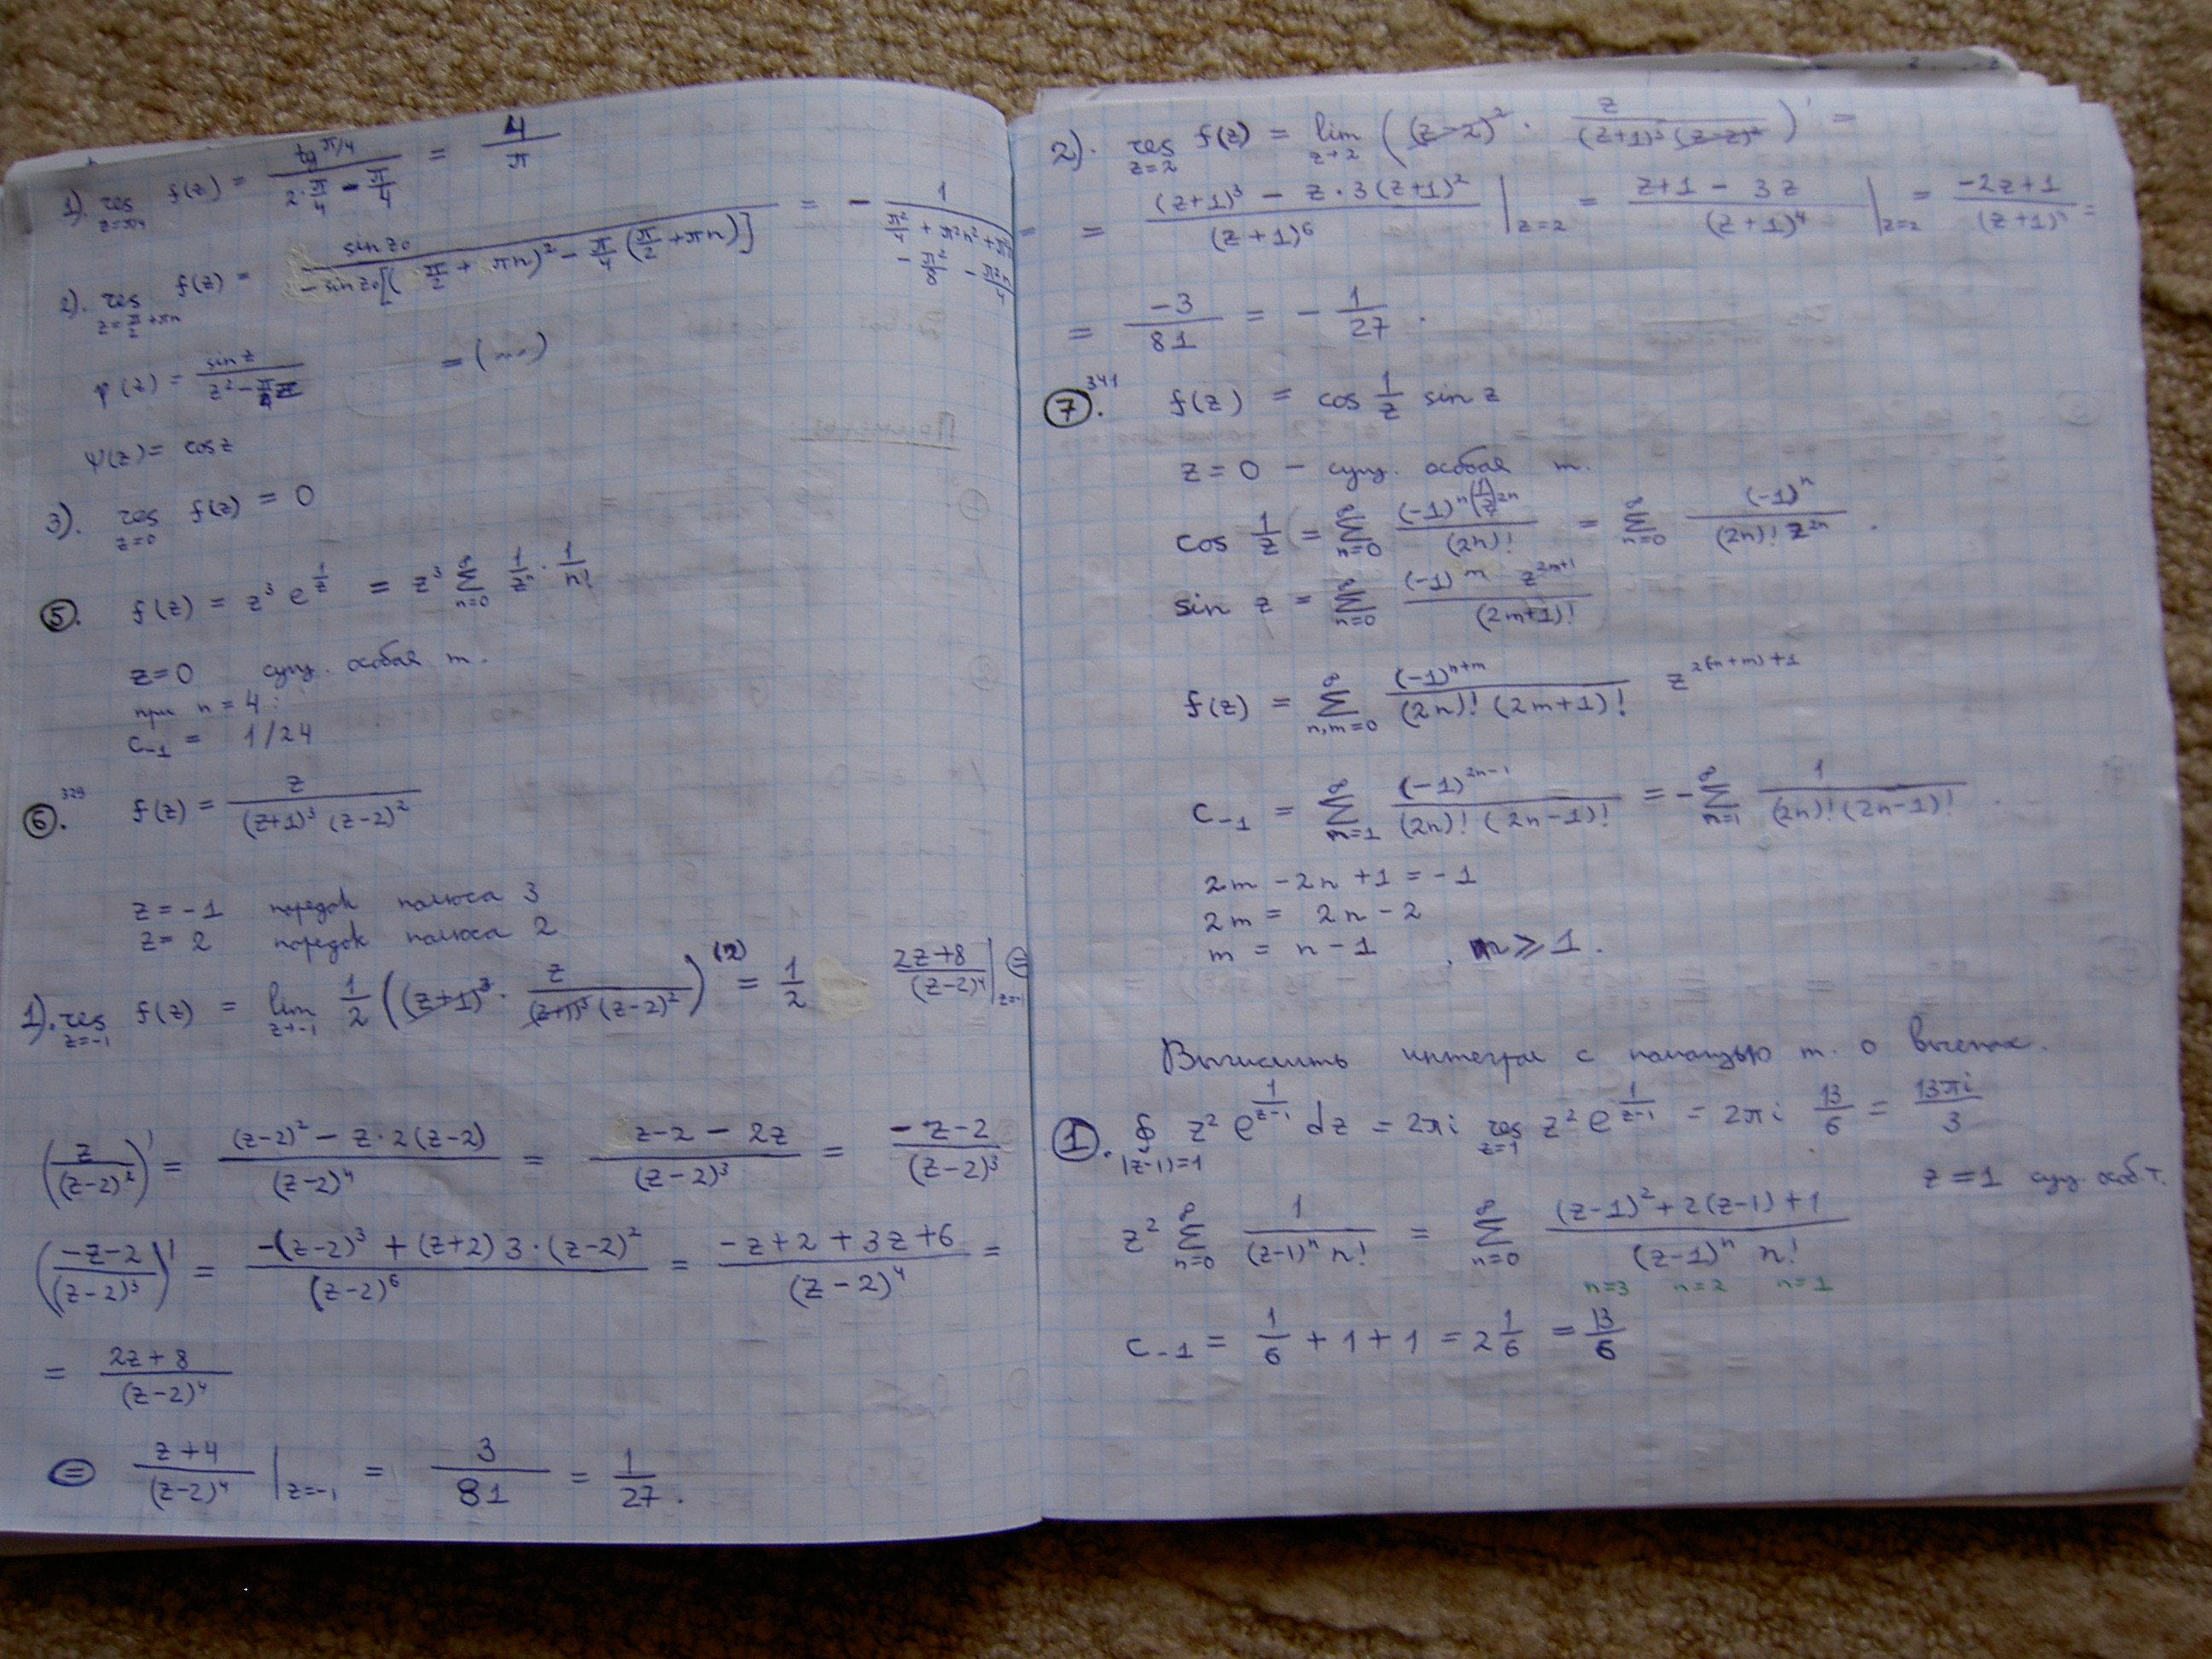 1). res_{z=π/4} f(z) = \frac{tg π/4}{2·\frac{π}{4} - \frac{π}{4}} = \frac{4}{π}
2). res_{z=\frac{π}{2}+πn} f(z) = \frac{sin z₀}{-sin z₀[(\frac{π}{2} + πn)² - \frac{π}{4}(\frac{π}{2} + πn)]} = - \frac{1}{\frac{π²}{4} + π²n² + π²n - \frac{π²}{8} - \frac{π²n}{4}} =
φ(z) = \frac{sin z}{z² - \frac{π}{4}z} = (...)
ψ(z) = cos z
3). res_{z=0} f(z) = 0
⑤. f(z) = z³ e^{\frac{1}{z}} = z³ \sum_{n=0}^{∞} \frac{1}{zⁿ} · \frac{1}{n!}
z=0 сущ. особая т.
при n = 4:
c₋₁ = 1/24
⑥.³²⁹ f(z) = \frac{z}{(z+1)³ (z-2)²}
z = -1 порядок полюса 3
z = 2 порядок полюса 2
1). res_{z=-1} f(z) = lim_{z→-1} \frac{1}{2} ((z+1)³ · \frac{z}{(z+1)³ (z-2)²})^{(2)} = \frac{1}{2} \frac{2z+8}{(z-2)⁴}|_{z=-1} ⊜
(\frac{z}{(z-2)²})' = \frac{(z-2)² - z·2(z-2)}{(z-2)⁴} = \frac{z-2-2z}{(z-2)³} = \frac{-z-2}{(z-2)³}
(\frac{-z-2}{(z-2)³})' = \frac{-(z-2)³ + (z+2) 3·(z-2)²}{(z-2)⁶} = \frac{-z+2+3z+6}{(z-2)⁴} =
= \frac{2z+8}{(z-2)⁴}
⊜ \frac{z+4}{(z-2)⁴}|_{z=-1} = \frac{3}{81} = \frac{1}{27}.
2). res_{z=2} f(z) = lim_{z→2} ((z-2)² · \frac{z}{(z+1)³(z-2)²})' =
= \frac{(z+1)³ - z·3(z+1)²}{(z+1)⁶}|_{z=2} = \frac{z+1-3z}{(z+1)⁴}|_{z=2} = \frac{-2z+1}{(z+1)⁴} =
= \frac{-3}{81} = - \frac{1}{27}.
⑦.³⁴¹ f(z) = cos \frac{1}{z} sin z
z = 0 - сущ. особая т.
cos \frac{1}{z} = \sum_{n=0}^{∞} \frac{(-1)ⁿ (\frac{1}{z})^{2n}}{(2n)!} = \sum_{n=0}^{∞} \frac{(-1)ⁿ}{(2n)! z^{2n}}.
sin z = \sum_{n=0}^{∞} \frac{(-1)^m z^{2m+1}}{(2m+1)!}
f(z) = \sum_{n,m=0}^{∞} \frac{(-1)^{n+m}}{(2n)! (2m+1)!} z^{2(n+m)+1}
c₋₁ = \sum_{n=1}^{∞} \frac{(-1)^{2n-1}}{(2n)! (2n-1)!} = - \sum_{n=1}^{∞} \frac{1}{(2n)! (2n-1)!}.
2m - 2n + 1 = -1
2m = 2n - 2
m = n - 1, n ⩾ 1.
Вычислить интеграл с помощью т. о вычетах.
①. ∮_{|z-1|=1} z² e^{\frac{1}{z-1}} dz = 2πi res_{z=1} z² e^{\frac{1}{z-1}} = 2πi \frac{13}{6} = \frac{13πi}{3}
z = 1 сущ. особ. т.
z² \sum_{n=0}^{∞} \frac{1}{(z-1)ⁿ n!} = \sum_{n=0}^{∞} \frac{(z-1)² + 2(z-1) + 1}{(z-1)ⁿ n!}
n=3 n=2 n=1
c₋₁ = \frac{1}{6} + 1 + 1 = 2\frac{1}{6} = \frac{13}{6}